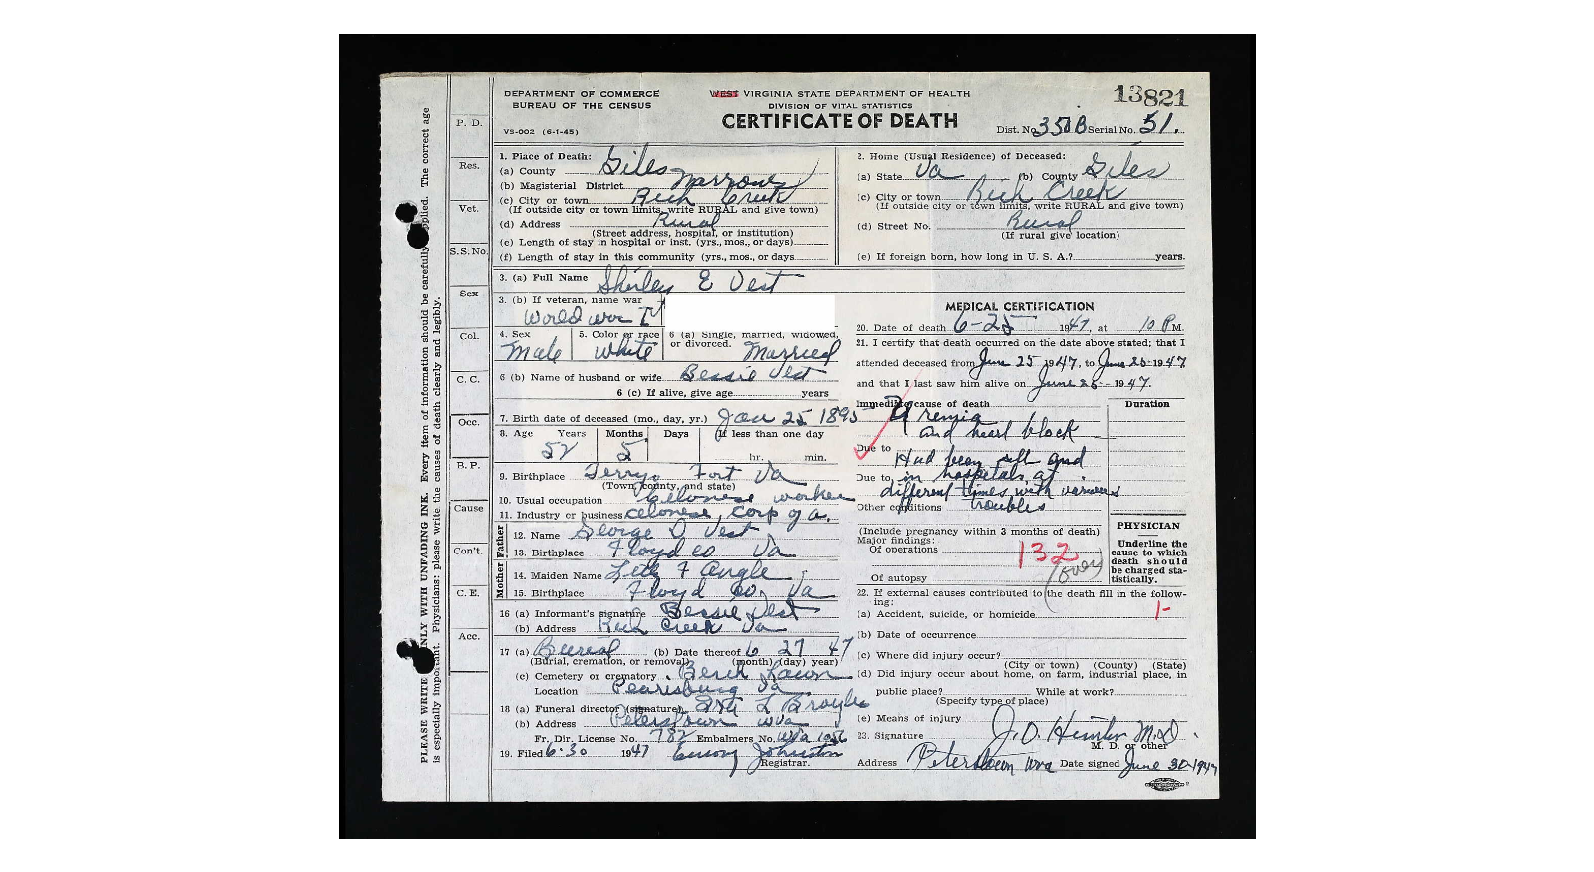 13821
DEPARTMENT OF COMMERCE
BUREAU OF THE CENSUS
VS-002 (6-1-45)
WEST VIRGINIA STATE DEPARTMENT OF HEALTH
DIVISION OF VITAL STATISTICS
CERTIFICATE OF DEATH
Dist. No. 350B Serial No. 51.
PLEASE WRITE ONLY WITH UNFADING INK. Every item of information should be carefully supplied. The correct age
is especially important. Physicians: please write the causes of death clearly and legibly.
P. D.
Res.
Vet.
S.S.No.
Sex
Col.
C. C.
Occ.
B. P.
Cause
Con't.
C. E.
Acc.
1. Place of Death:
(a) County Giles
(b) Magisterial District Narrows
(c) City or town Rich Creek
(If outside city or town limits, write RURAL and give town)
(d) Address Rural
(Street address, hospital, or institution)
(e) Length of stay in hospital or inst. (yrs., mos., or days)
(f) Length of stay in this community (yrs., mos., or days)
2. Home (Usual Residence) of Deceased:
(a) State Va (b) County Giles
(c) City or town Rich Creek
(If outside city or town limits, write RURAL and give town)
(d) Street No. Rural
(If rural give location)
(e) If foreign born, how long in U. S. A.? years.
3. (a) Full Name Shirley E Vest
3. (b) If veteran, name war
World war I
4. Sex Male
5. Color or race White
6 (a) Single, married, widowed,
or divorced. Married
6 (b) Name of husband or wife Bessie Vest
6 (c) If alive, give age years
7. Birth date of deceased (mo., day, yr.) Jan 25 1895
8. Age Years Months Days If less than one day
52 5 hr. min.
9. Birthplace Terrys Fort Va
(Town, county, and state)
10. Usual occupation Celonese worker
11. Industry or business celonese corp of a.
Father
12. Name George D Vest
13. Birthplace Floyd co Va
Mother
14. Maiden Name Leta F Angle
15. Birthplace Floyd Co, Va
16 (a) Informant's signature Bessie Vest
(b) Address Rich Creek Va
17 (a) Bureal (b) Date thereof 6 27 47
(Burial, cremation, or removal) (month) (day) year)
(c) Cemetery or crematory Berch Lawn
Location Pearisburg Va
18 (a) Funeral director (signature) L Broyles
(b) Address Peterstown W Va
Fr. Dir. License No. 782 Embalmers No. W Va 1056
19. Filed 6-30 1947 Emory Johnston
Registrar.
MEDICAL CERTIFICATION
20. Date of death 6-25 1947, at 10 P M.
21. I certify that death occurred on the date above stated; that I
attended deceased from June 25 1947, to June 25-1947
and that I last saw him alive on June 25 - 1947.
Immediate cause of death Uremia
and heart block
Duration
Due to Had been sill and
Due to in hospitals at
different times with various
Other conditions troubles
(Include pregnancy within 3 months of death)
Major findings:
Of operations
132
(over)
Of autopsy
PHYSICIAN
Underline the
cause to which
death should
be charged sta-
tistically.
22. If external causes contributed to the death fill in the follow-
ing:
(a) Accident, suicide, or homicide
1-
(b) Date of occurrence
(c) Where did injury occur?
(City or town) (County) (State)
(d) Did injury occur about home, on farm, industrial place, in
public place? While at work?
(Specify type of place)
(e) Means of injury
23. Signature J. O. M.D.
M. D. or other
Address Peterstown W Va Date signed June 30-1947